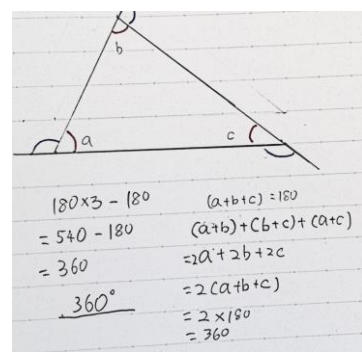 b
a
c
180×3 - 180
= 540 - 180
= 360
360°
(a+b+c) = 180
(a+b)+(b+c)+(a+c)
=2a+2b+2c
=2(a+b+c)
=2×180
=360